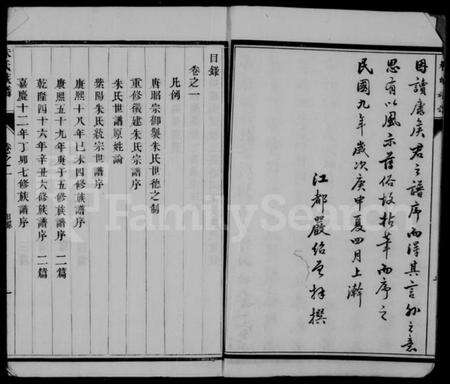 因讀康侯君之譜序而得其言外之意
思有以風示薄俗故拈筆而序之
民國九年歲次庚申夏四月上澣
江都嚴紹曾拜撰
目錄
卷之一
凡例
唐昭宗御製朱氏世德之制
重修儀建朱氏宗譜序
朱氏世譜原姓論
滎陽朱氏敘宗世譜序
康熙十八年己未四修族譜序
康熙五十九年庚子五修族譜序 二篇
乾隆四十六年辛丑六修族譜序 二篇
嘉慶十二年丁卯七修族譜序
朱氏族譜 卷之一 目錄 一
FamilySearch